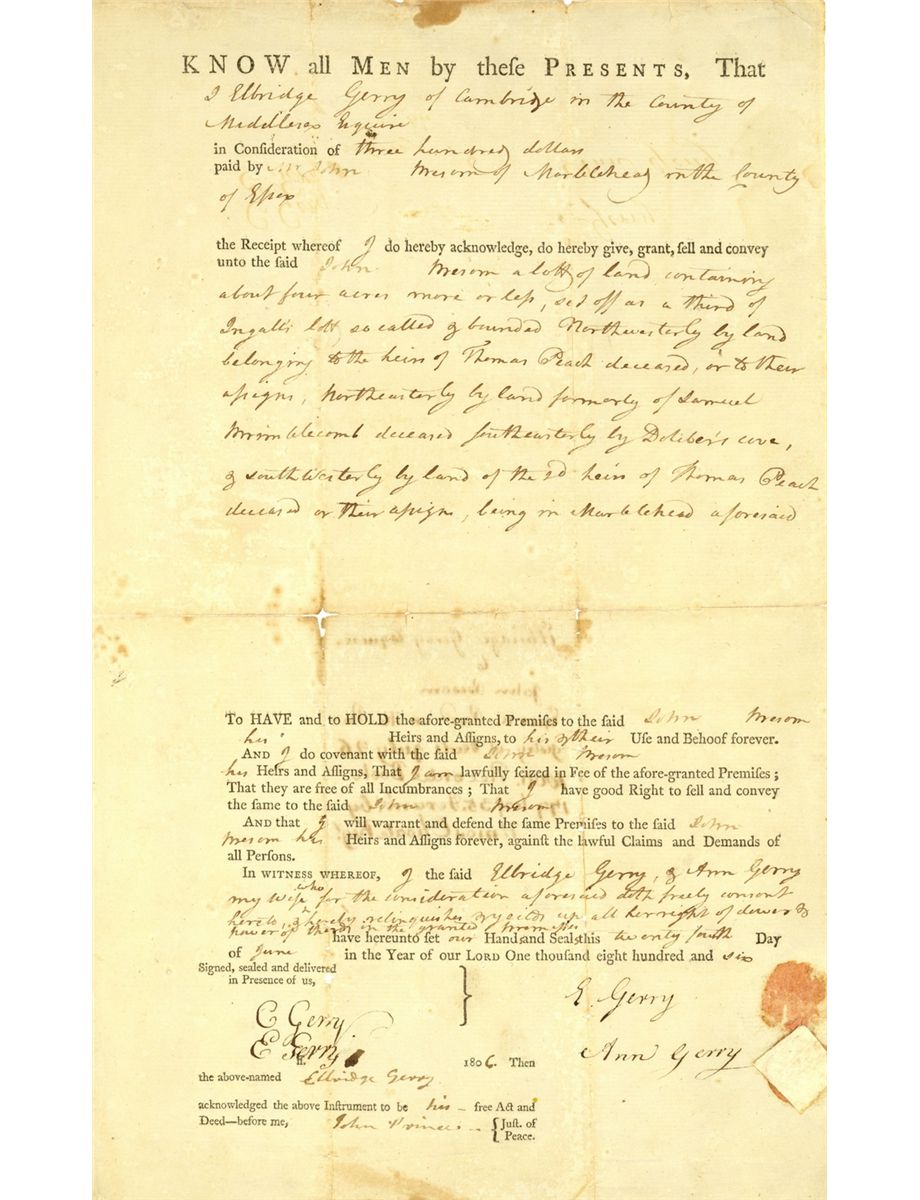 KNOW all MEN by theſe PRESENTS, That
I Elbridge Gerry of Cambridge in the County of
Middlesex Esquire
in Conſideration of three hundred dollars
paid by Mr John Mesom of Marblehead in the County
of Eſsex
the Receipt whereof I do hereby acknowledge, do hereby give, grant, ſell and convey
unto the ſaid John Mesom a lott of land containing
about four acres more or leſs, set off as a third of
Ingalls lott, so called & bounded Northwesterly by land
belonging to the heirs of Thomas Peach deceased, or to their
aſsigns, Northeasterly by land formerly of Samuel
deceased southeasterly by Doliber's cove,
& southwesterly by land of the sd heirs of Thomas Peach
deceased or their aſsigns, being in Marblehead aforesaid
To HAVE and to HOLD the afore-granted Premiſes to the ſaid John Mesom
his Heirs and Aſſigns, to his & their Uſe and Behoof forever.
AND I do covenant with the ſaid John Mesom
his Heirs and Aſſigns, That I am lawfully ſeized in Fee of the afore-granted Premiſes ;
That they are free of all Incumbrances ; That I have good Right to ſell and convey
the ſame to the ſaid John Mesom
AND that I will warrant and defend the ſame Premiſes to the ſaid John
Mesom his Heirs and Aſſigns forever, againſt the lawful Claims and Demands of
all Perſons.
In WITNESS WHEREOF, I the ſaid Elbridge Gerry, & Ann Gerry
my wife who for the consideration aforesaid doth freely consent
hereto, & hereby relinquishes & yields up all her right of dower &
power of thirds in the granted premises
have hereunto ſet our Hands and Seals this twenty fourth Day
of June in the Year of our LORD One thouſand eight hundred and six
Signed, sealed and delivered
in Presence of us,
E. Gerry
C Gerry
E Gerry
Ann Gerry
ſſ. 1806. Then
the above-named Elbridge Gerry
acknowledged the above Inſtrument to be his free Act and
Deed—before me, John Prince Juſt. of
Peace.